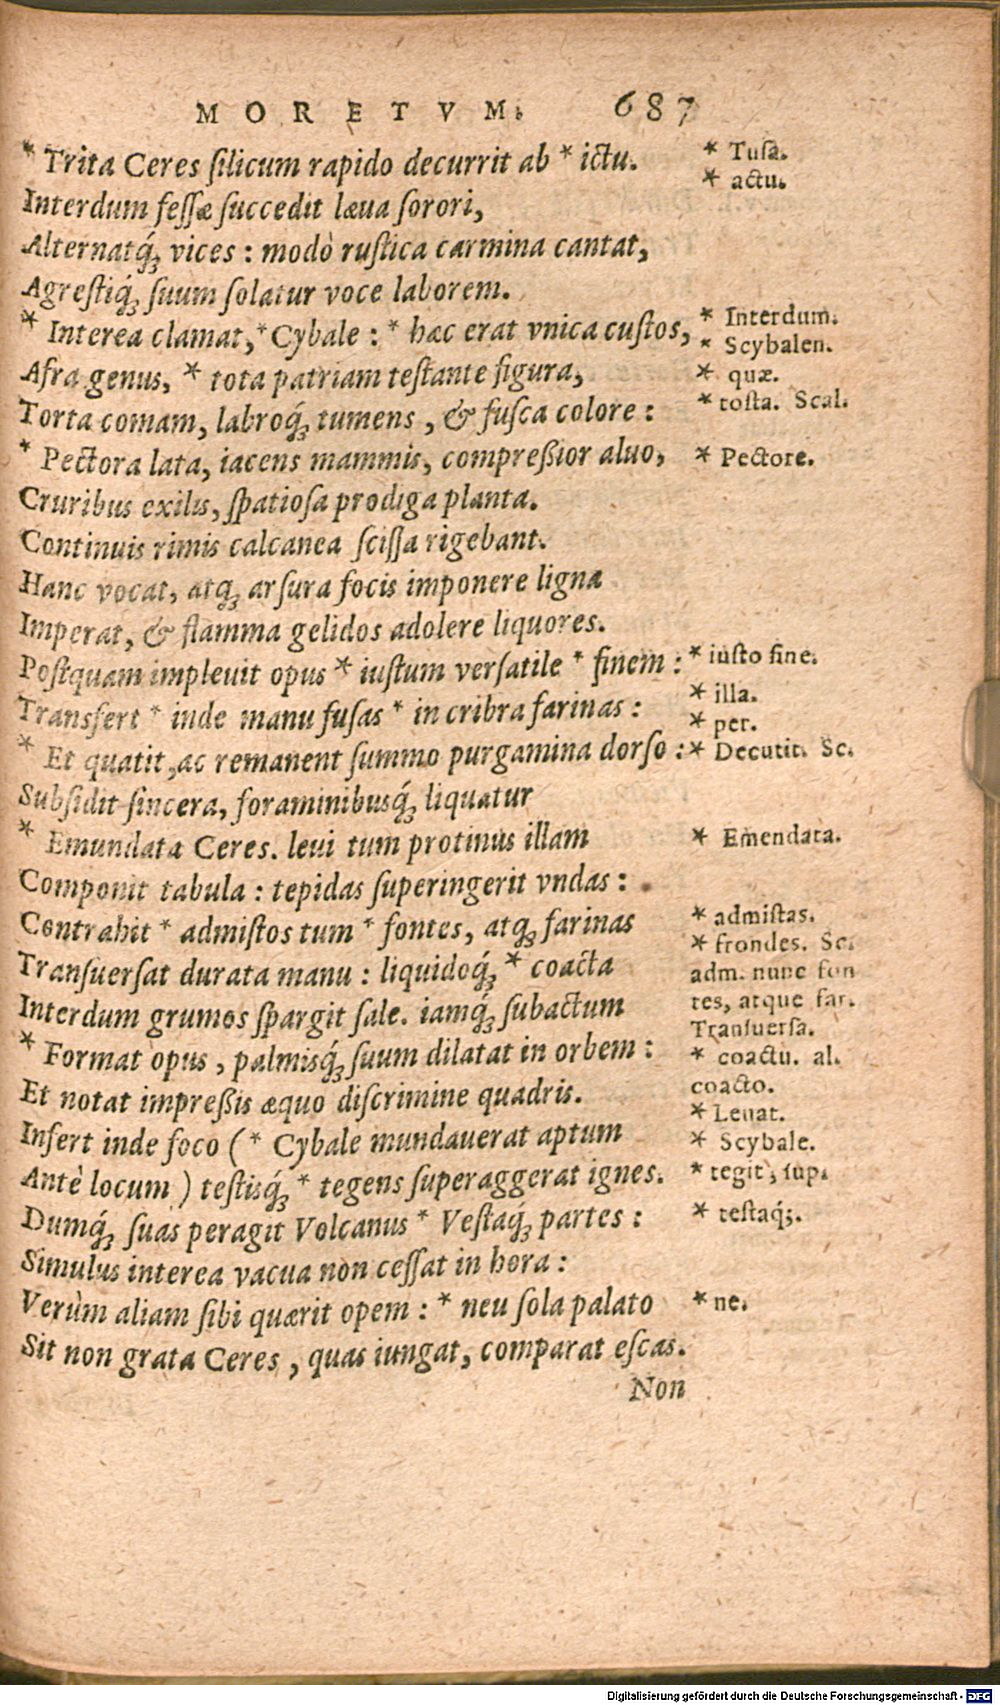 MORETVM. 687
* Trita Ceres silicum rapido decurrit ab * ictu.
Interdum fessæ succedit læua sorori,
Alternatq́; vices : modò rustica carmina cantat,
Agrestiq́; suum solatur voce laborem.
* Interea clamat, * Cybale : * hæc erat vnica custos,
Afra genus, * tota patriam testante figura,
Torta comam, labroq́; tumens , & fusca colore :
* Pectora lata, iacens mammis, compreßior aluo,
Cruribus exilis, spatiosa prodiga planta.
Continuis rimis calcanea scissa rigebant.
Hanc vocat, atq; arsura focis imponere ligna
Imperat, & flamma gelidos adolere liquores.
Postquam impleuit opus * iustum versatile * finem :
Transfert * inde manu fusas * in cribra farinas :
* Et quatit, ac remanent summo purgamina dorso :
Subsidit sincera, foraminibusq́; liquatur
* Emundata Ceres. leui tum protinus illam
Componit tabula : tepidas superingerit vndas :
Contrahit * admistos tum * fontes, atq; farinas
Transuersat durata manu : liquidoq́; * coacta
Interdum grumos spargit sale. iamq́; subactum
* Format opus , palmisq́; suum dilatat in orbem :
Et notat impreßis æquo discrimine quadris.
Insert inde foco ( * Cybale mundauerat aptum
Antè locum ) testisq́; * tegens superaggerat ignes.
Dumq́; suas peragit Volcanus * Vestaq́; partes :
Simulus interea vacua non cessat in hora :
Verùm aliam sibi quærit opem : * neu sola palato
Sit non grata Ceres , quas iungat, comparat escas.
Non
* Tusa.
* actu.
* Interdum.
* Scybalen.
* quæ.
* tosta. Scal.
* Pectore.
* iusto fine.
* illa.
* per.
* Decutit. Sc.
* Emendata.
* admistas.
* frondes. Sc.
adm. nunc fon
tes, atque far.
Transuersa.
* coactu. al.
coacto.
* Leuat.
* Scybale.
* tegit, sup.
* testaq́;.
* ne.
Digitalisierung gefördert durch die Deutsche Forschungsgemeinschaft - DFG